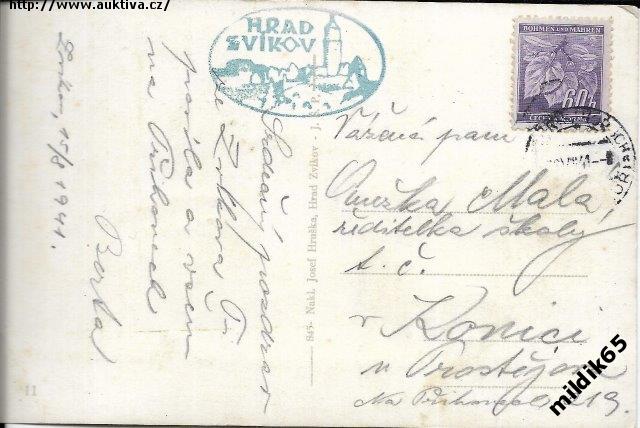 http://www.auktiva.cz/
HRAD
ZVÍKOV
BÖHMEN UND MÄHREN
60 h
ČECHY A MORAVA
Zvíkov, 15/8 1941.
Srdečný pozdrav
ze Zvíkova Ti
posílá a všem
na Příhonech
Berta
845 - Nakl. Josef Hruška, Hrad Zvíkov - J. K. P.
11
Vážená paní
Anežka Malá,
ředitelka školy
t. č.
v Konici
u Prostějova
Na Příhonech 219.
mildik65